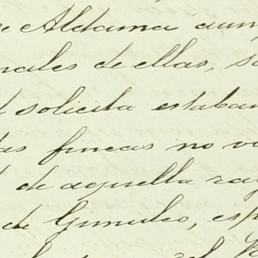 Aldama aunq
nales de ellas, s
solicita estaban
las fincas no v
de aquella ra
de Gimileo, esp